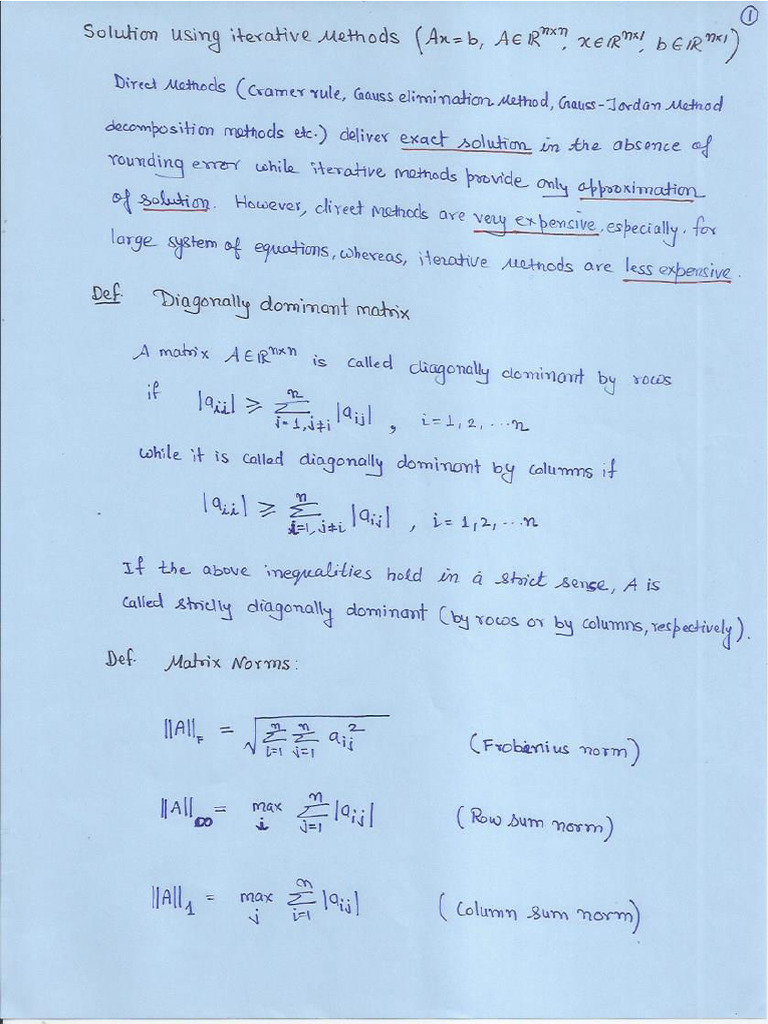 ①
Solution using iterative methods (Ax=b, A∈ℝⁿˣⁿ, x∈ℝⁿˣ¹, b∈ℝⁿˣ¹)
Direct Methods (Cramer rule, Gauss elimination Method, Gauss-Jordan Method
decomposition methods etc.) deliver exact solution in the absence of
rounding error while iterative methods provide only approximation
of solution. However, direct methods are very expensive, especially. for
large system of equations, whereas, iterative methods are less expensive.
Def. Diagonally dominant matrix
A matrix A∈ℝⁿˣⁿ is called diagonally dominant by rows
if |a_{ii}| ≥ ∑_{j=1, j≠i}^{n} |a_{ij}| , i=1,2,...n
while it is called diagonally dominant by columns if
|a_{ii}| ≥ ∑_{i=1, j≠i}^{n} |a_{ij}| , i=1,2,...n
If the above inequalities hold in a strict sense, A is
called stricly diagonally dominant (by rows or by columns, respectively).
Def. Matrix Norms:
||A||_F = √(∑_{i=1}^{n} ∑_{j=1}^{n} a_{ij}^2) (Frobenius norm)
||A||_∞ = max_i ∑_{j=1}^{n} |a_{ij}| (Row sum norm)
||A||_1 = max_j ∑_{i=1}^{n} |a_{ij}| (Column sum norm)